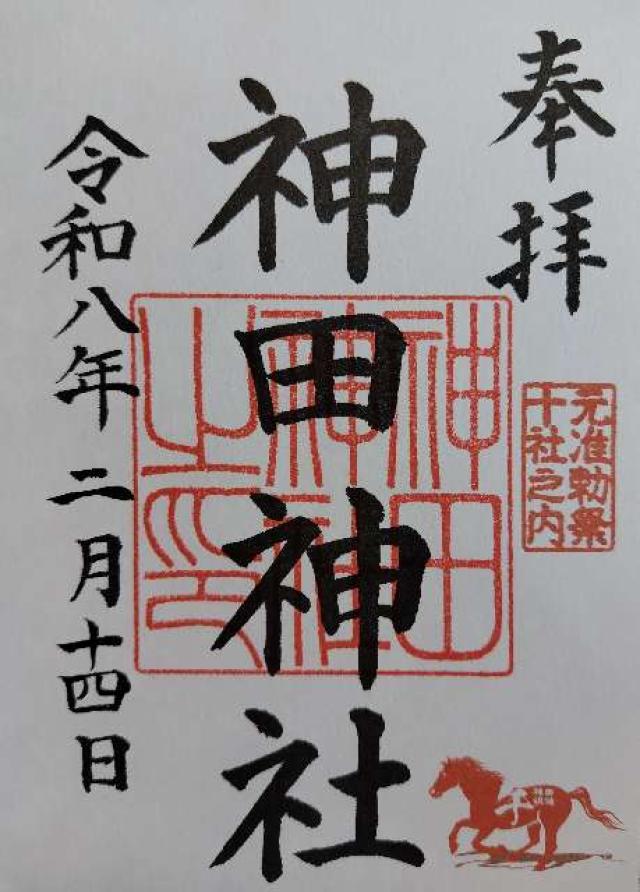 奉拝
元准勅祭
十社之内
神田神社
神田
神社
之印
令和八年二月十四日
午